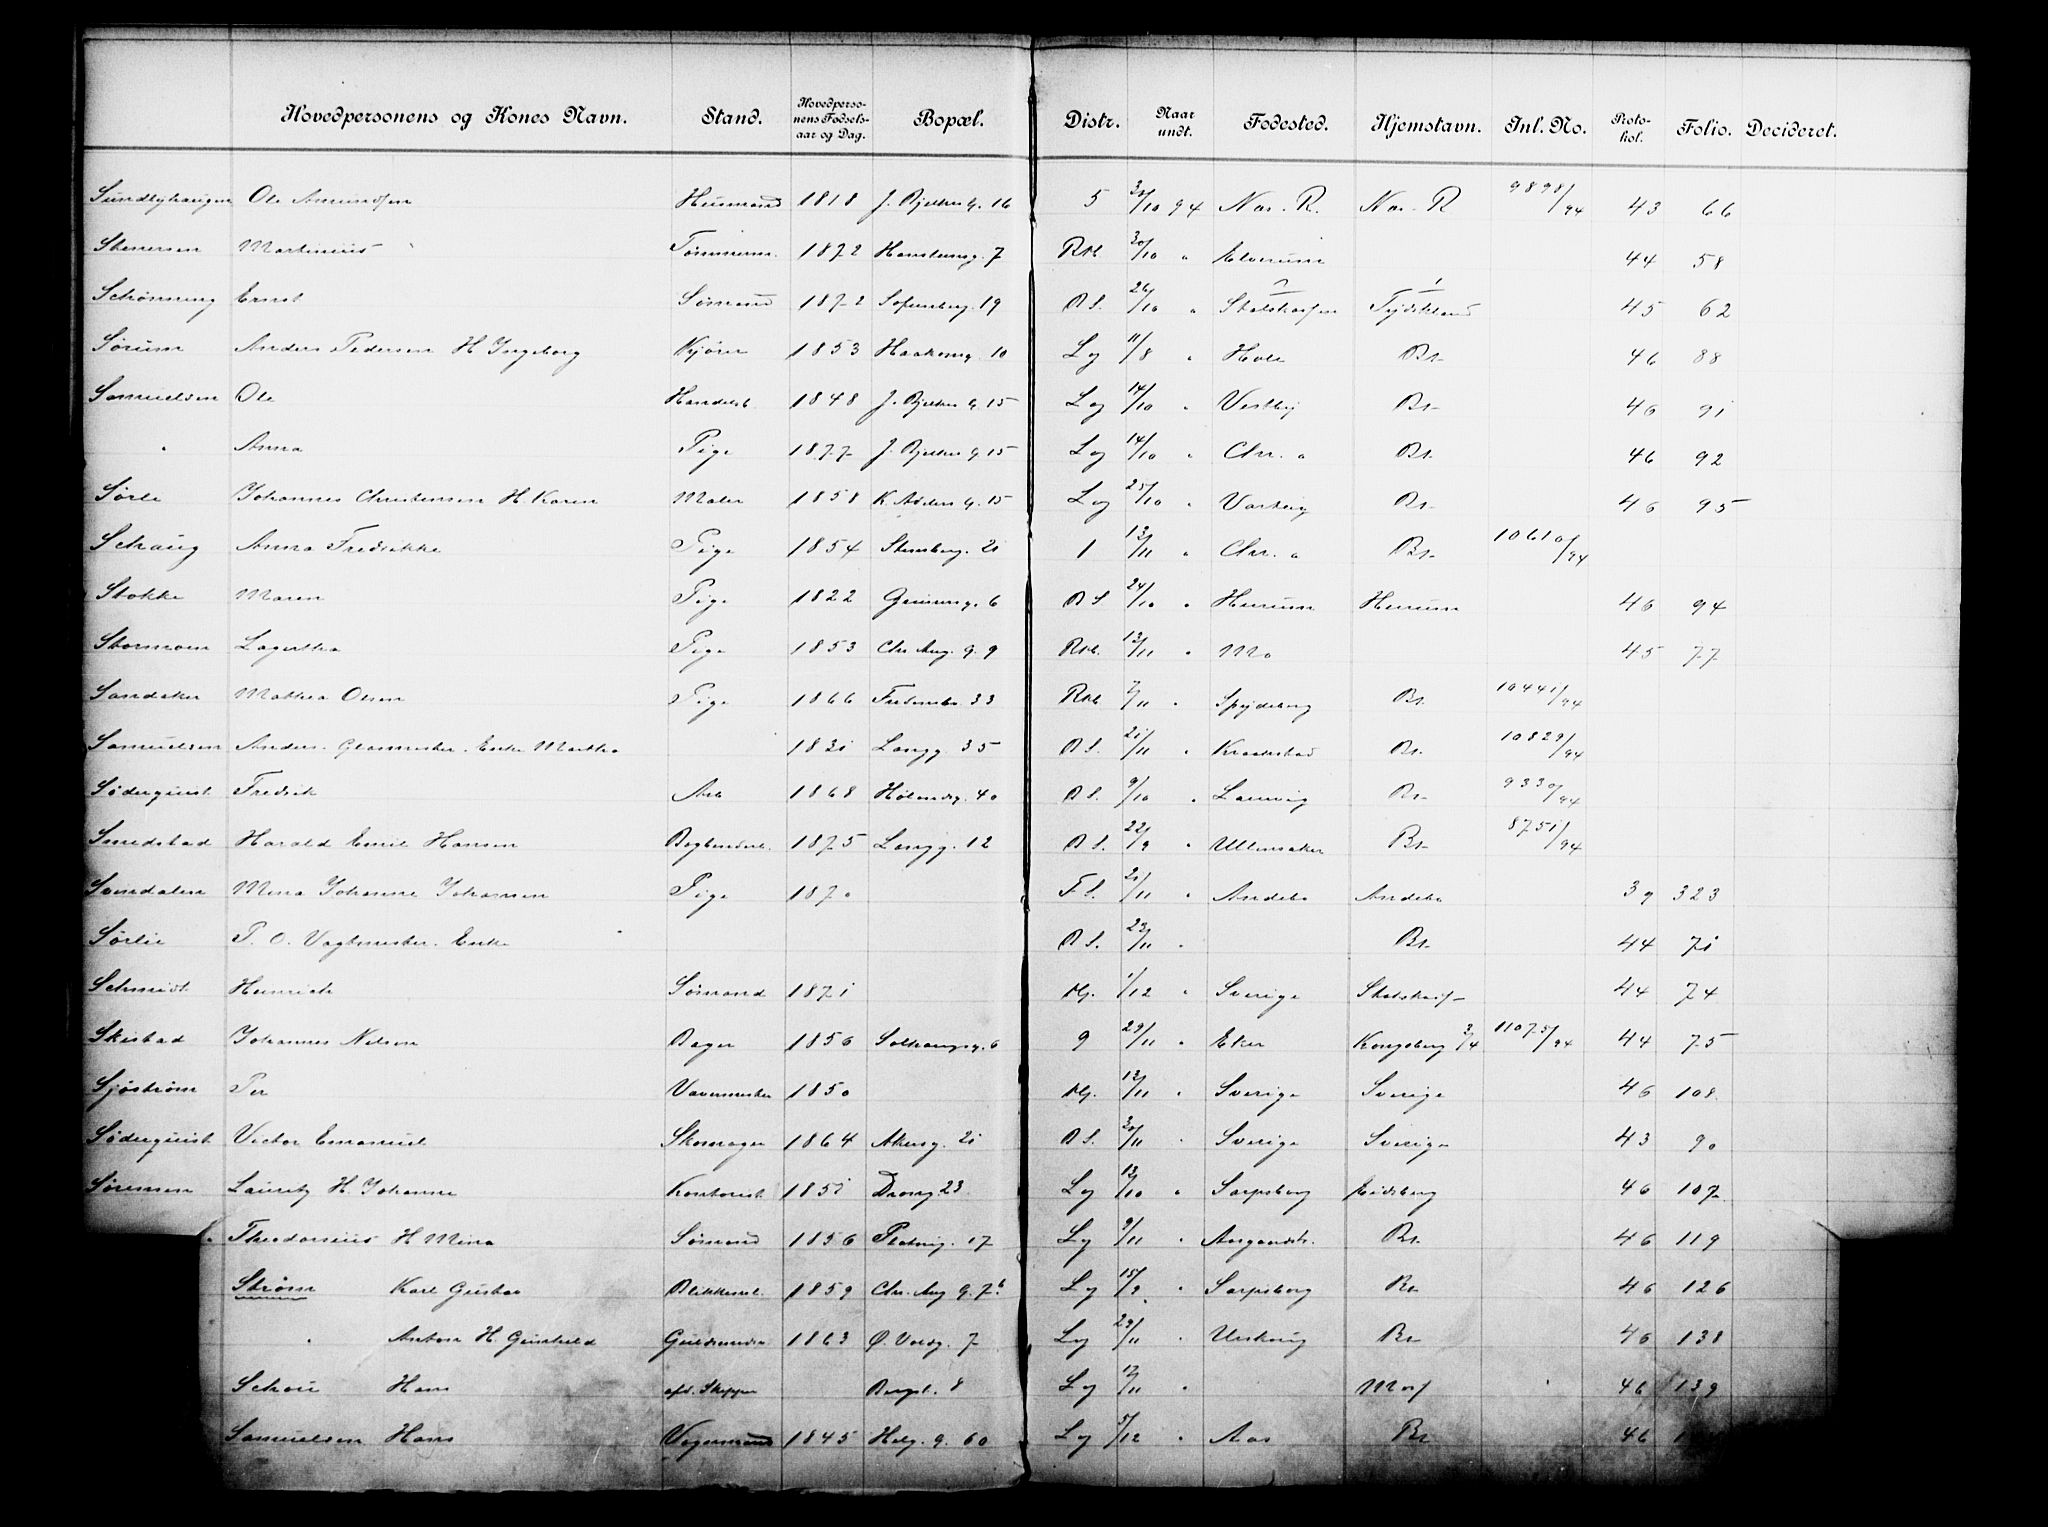 Hovedpersonens og Kones Navn. Stand. Hovedpersonens Fødselsaar og Dag. Bopæl. Distr. Naar undt. Fødested. Hjemstavn. Inl. No. Protokol. Folio. Decideret.
Sundbyhaugen Ole Amundsen Husmand 1818 J. Bjelkes G. 16 5 30/10 94 Næs. R. Næs. R 9898/94 43 66
Stenersen Martinius Tømmerm. 1872 Hauslemsg. 7 Rkl 30/10 " Elverum 44 58
Schønning Ernst Sømand 1872 Sofienberg. 19 B S. 26/10 " ? Tydskland 45 62
Sørum Anders Pedersen H Ingeborg Kjører 1853 Haakonsg. 10 Lg 11/8 " Hole Br 46 88
Samuelsen Ole Handelsb. 1848 J. Bjelkes G. 15 Lg 14/10 " Vestby Br 46 91
" Anna Pige 1877 J. Bjelkes G. 15 Lg 14/10 " Chr. a Br 46 92
Sørle Johannes Christensen H. Karen Maler 1858 K. Adelers G. 15 Lg 25/10 " Varteig Br 46 95
Schaug Anna Fredrikke Pige 1854 Stensberg. 21 1 13/11 " Chr. a Br 10610/94
Stokke Maren Pige 1822 6 B S 24/10 " Hurum Hurum 46 94
Stormoen Lagertha Pige 1853 Chr. Aug. g. 9 Rkl. 13/11 " Mo 45 77
Sandaker Mathea Olsen Pige 1866 Fredensbr. 33 Rkl 7/11 " Spydeberg Br 10441/94
Samuelsen Anders. Glasmester. Enke Martha 1831 Langg. 35 B S. 21/11 " Kraakstad Br 10829/94
Søderquist Fredrik Arb 1868 Hølandsg. 40 B S. 9/10 " Laurvig Br 9330/94
Smedstad Harald Emil Hansen Bogbinderl. 1875 Langg. 12 B S. 22/9 " Ullensaker Br 8751/94
Sundalen Mina Johanne Johansen Pige 1870 F S. 21/11 " Andebo Andebo 39 323
Sørlie P. O. Vagtmester. Enke B S. 23/11 " Br 44 71
Schmidt Heinrich Sømand 1871 Hj. 1/12 " Sverige 44 74
Skistad Johannes Nilsen Bager 1856 Solhaugsg. 6 9 29/11 " Eker Kongsberg 3/4 11075/94 44 75
Sjöström Per Vævermester 1850 Hj. 13/11 " Sverige Sverige 46 108
Søderquist Victor Emanuel Skomager 1864 Akersg. 21 B S. 30/11 " Sverige Sverige 43 90
Sørensen Lauritz H. Johanne Kontorist 1851 Drong. 23 Lg 13/10 " Sarpsborg Eidsberg 46 107
Theodorsius H Mina Sømand 1856 17 Lg 9/11 " Aasgaardstr. Br 46 119
Strøm Karl Gustav Blikkensl. 1859 Chr. Aug g. 7b Lg 15/9 " Sarpsborg Br 46 126
" Anton H. Gunhild Guldsmedsv 1863 Ø. Voldg. 7 Lg 29/11 " Urskoug Br 46 138
Schou Hans afsk. Skipper Bergst. 8 Lg 17/11 " Moss 46 139
Samuelsen Hans Vognmand 1845 Helg. g. 60 Lg 5/12 " Aas Br 46